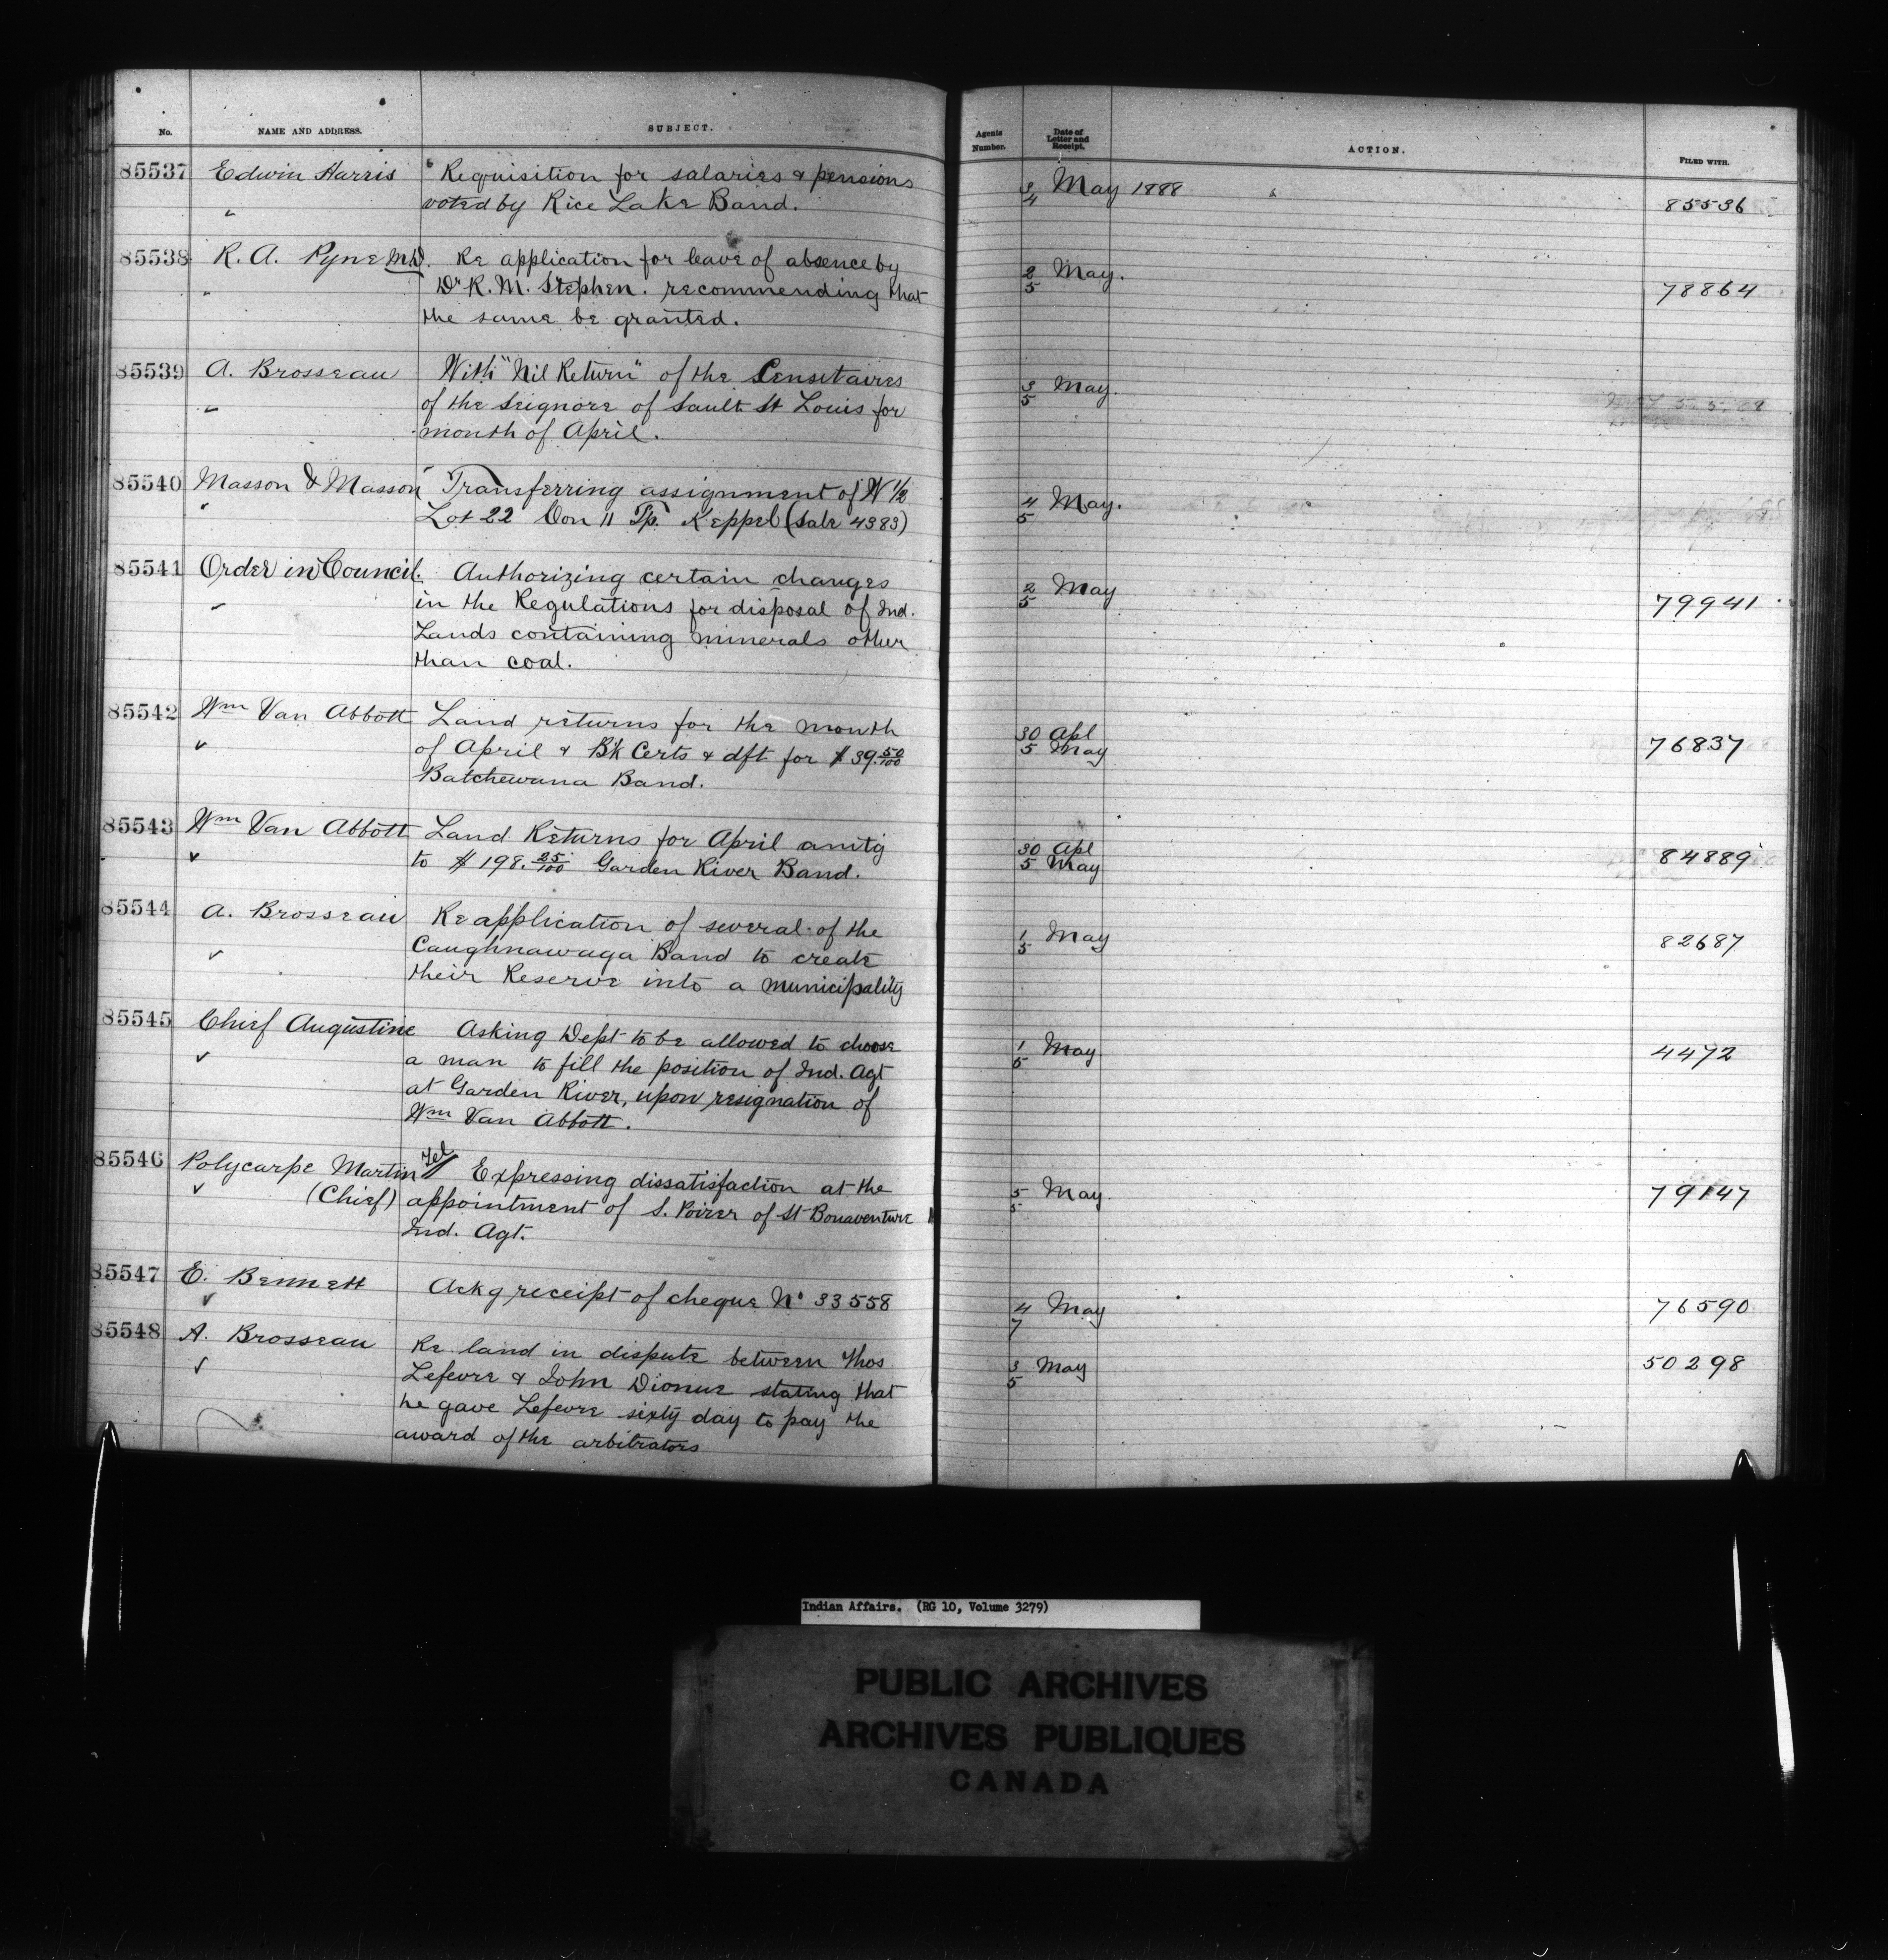 No. NAME AND ADDRESS. SUBJECT.
85537 Edwin Harris Requisition for salaries & pensions
voted by Rice Lake Band.
85538 R. A. Pyne M.D. Re application for leave of absence by
Dr R. M. Stephen. recommending that
the same be granted.
85539 A. Brosseau With "Nil Return" of the Censitaires
of the Seignore of Sault St Louis for
month of April.
85540 Masson & Masson Transferring assignment of W 1/2
Lot 22 Con 11 Tp. Keppel (Sale 4383)
85541 Order in Council. Authorizing certain changes
in the Regulations for disposal of Ind.
Lands containing minerals other
than coal.
85542 Wm Van Abbott Land returns for the month
of April & Bk Certs & dft for $39.50/100
Batchewana Band.
85543 Wm Van Abbott Land Returns for April amtg
to $198.25/100 Garden River Band.
85544 A. Brosseau Re application of several of the
Caughnawaga Band to create
their Reserve into a municipality
85545 Chief Augustine Asking Dept to be allowed to choose
a man to fill the position of Ind. Agt
at Garden River, upon resignation of
Wm Van Abbott.
85546 Polycarpe Martin Tel Expressing dissatisfaction at the
(Chief) appointment of S. Poirer of St Bonaventure
Ind. Agt.
85547 E. Bennett Ackg receipt of cheque No 33558
85548 A. Brosseau Re land in dispute between Thos
Lefevre & John Dionne stating that
he gave Lefevre sixty day to pay the
award of the arbitrators
Agents Number. Date of Letter and Receipt. ACTION. FILED WITH.
3/4 May 1888 85536
2/5 May. 78864
3/5 May.
4/5 May.
2/5 May 79941
30 Apl
5 May 76837
30 Apl
5 May 84889
1/5 May 82687
1/5 May 4472
5/5 May. 79147
4/7 May 76590
3/5 May 50298
Indian Affairs. (RG 10, Volume 3279)
PUBLIC ARCHIVES
ARCHIVES PUBLIQUES
CANADA